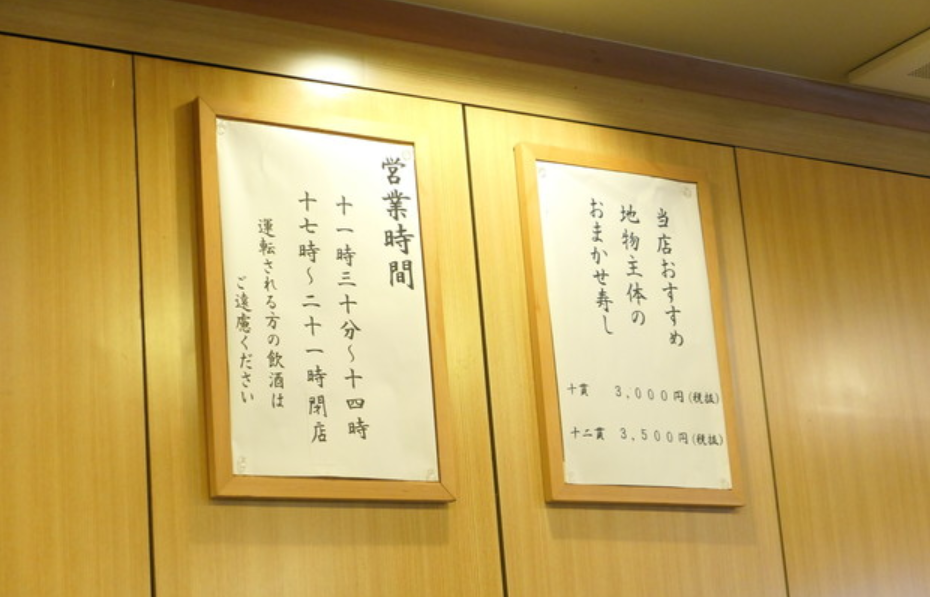 営業時間
十一時三十分～十四時
十七時～二十一時閉店
運転される方の飲酒は
ご遠慮ください
当店おすすめ
地物主体の
おまかせ寿し
十貫 3,000円(税抜)
十二貫 3,500円(税抜)